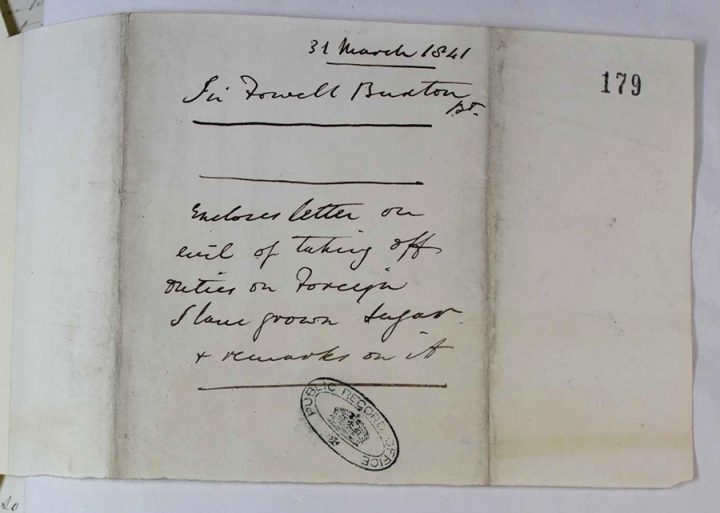 31 March 1841
179
Sir Fowell Buxton
Bt.
Encloses letter on
evil of taking off
duties on Foreign
Slave grown Sugar
& remarks on it
PUBLIC RECORD OFFICE